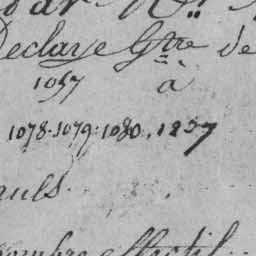 Declare Gtre de
1057 à
1078.1079.1080.1257
nombre effectif